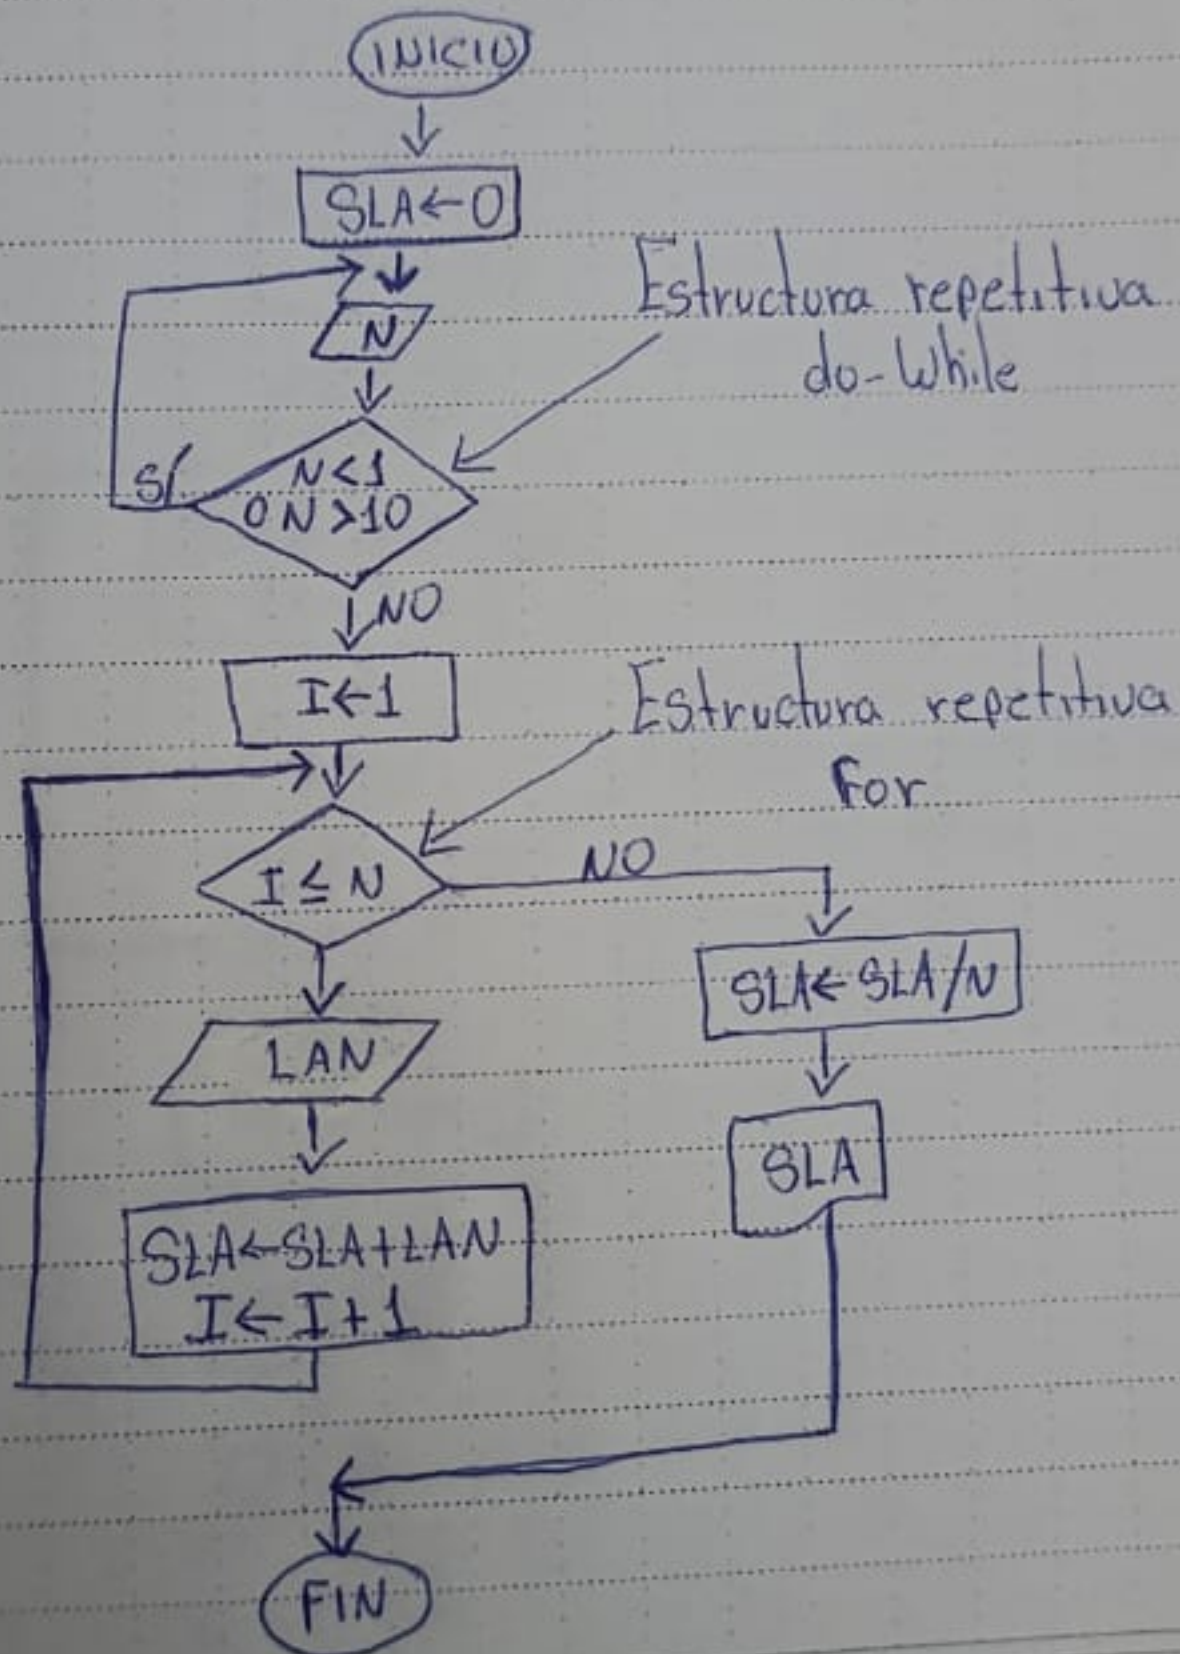 INICIO
SLA←0
Estructura repetitiva
do-While
N
N<1
O N>10
SÍ
NO
I←1
Estructura repetitiva
For
I≤N
NO
LAN
SLA←SLA/N
SLA
SLA←SLA+LAN
I←I+1
FIN